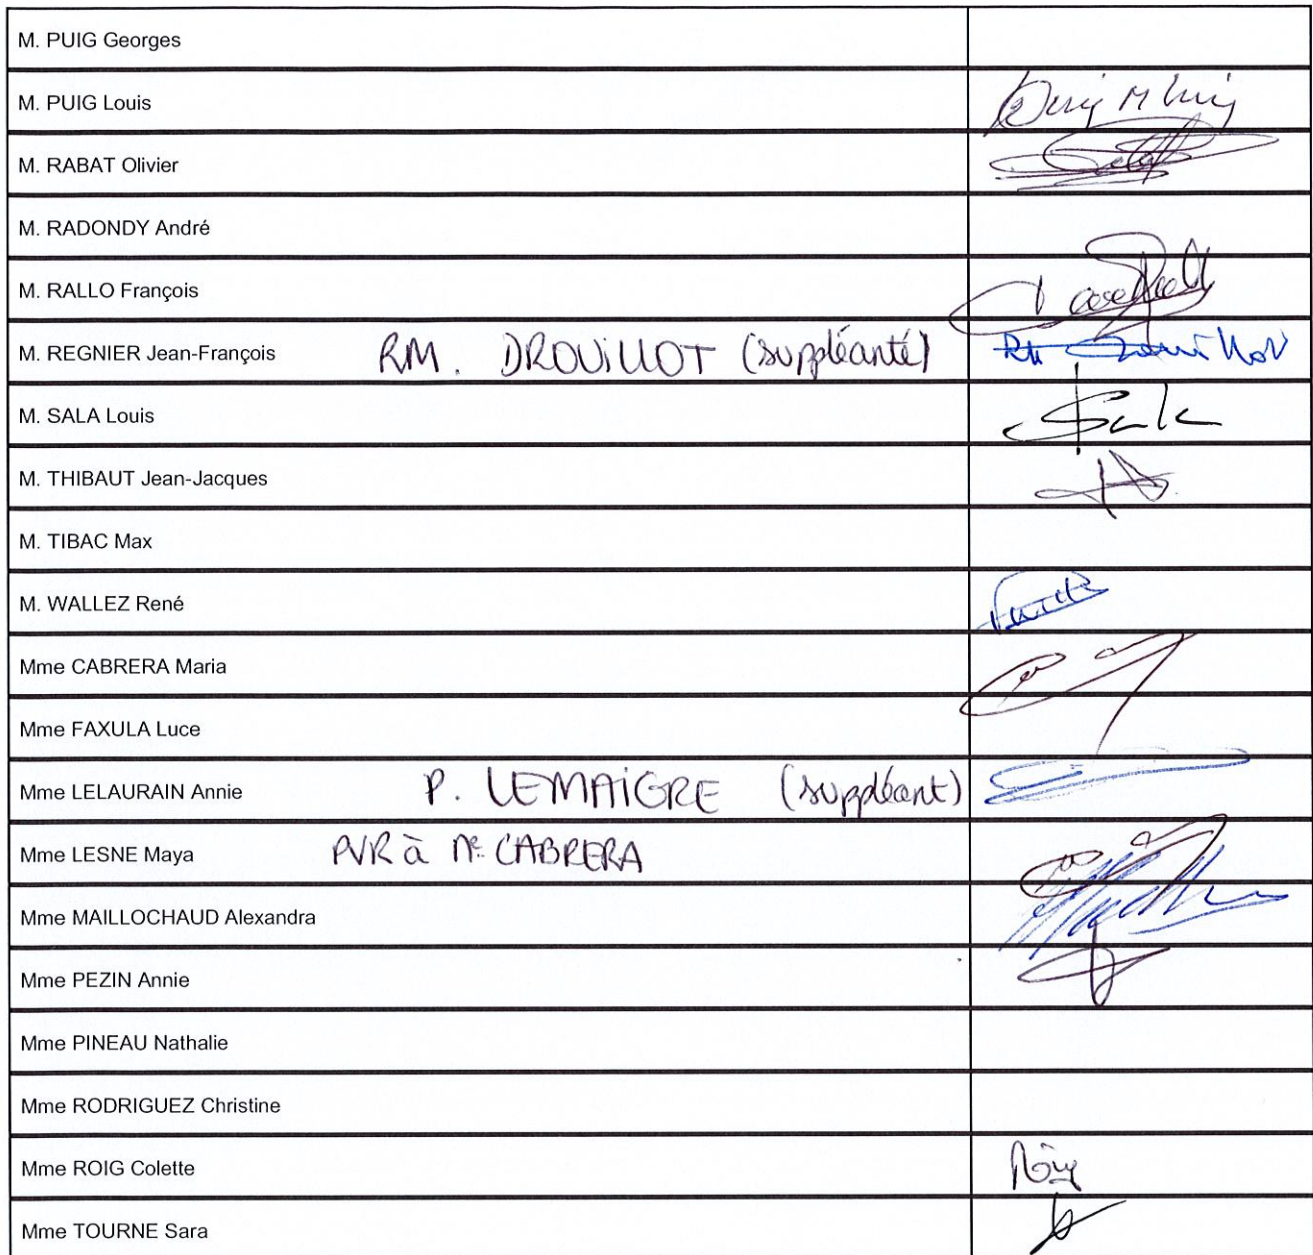 M. PUIG Georges
M. PUIG Louis
M. RABAT Olivier
M. RADONDY André
M. RALLO François
M. REGNIER Jean-François RM. DROUILLOT (suppléante)
M. SALA Louis Sala
M. THIBAUT Jean-Jacques
M. TIBAC Max
M. WALLEZ René
Mme CABRERA Maria
Mme FAXULA Luce
Mme LELAURAIN Annie P. LEMAIGRE (suppléant)
Mme LESNE Maya PVR à Me CABRERA
Mme MAILLOCHAUD Alexandra
Mme PEZIN Annie
Mme PINEAU Nathalie
Mme RODRIGUEZ Christine
Mme ROIG Colette Roig
Mme TOURNE Sara